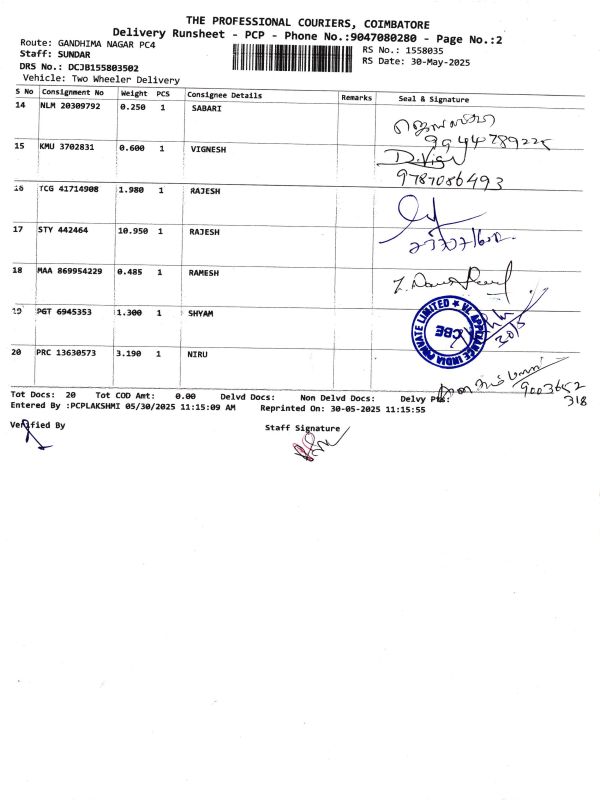 THE PROFESSIONAL COURIERS, COIMBATORE
Delivery Runsheet - PCP - Phone No.:9047080280 - Page No.:2
Route: GANDHIMA NAGAR PC4
RS No.: 1558035
Staff: SUNDAR
RS Date: 30-May-2025
DRS No.: DCJB155803502
Vehicle: Two Wheeler Delivery
S No Consignment No Weight PCS Consignee Details Remarks Seal & Signature
14 NLM 20309792 0.250 1 SABARI
9944789225
15 KMU 3702831 0.600 1 VIGNESH
D.Vign
9787086493
16 TCG 41714908 1.980 1 RAJESH
17 STY 442464 10.950 1 RAJESH
18 MAA 869954229 0.485 1 RAMESH
19 PGT 6945353 1.300 1 SHYAM
VL APPLIANCE INDIA PRIVATE LIMITED ★
CBE
30/5
20 PRC 13630573 3.190 1 NIRU
9003652
318
Tot Docs: 20 Tot COD Amt: 0.00 Delvd Docs: Non Delvd Docs: Delvy Pts:
Entered By :PCPLAKSHMI 05/30/2025 11:15:09 AM Reprinted On: 30-05-2025 11:15:55
Verified By
Staff Signature